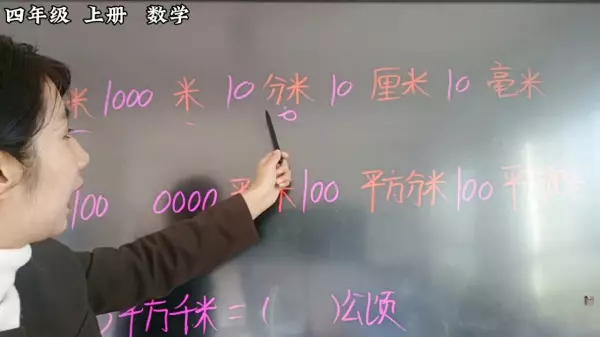 四年级 上册 数学
米 1000 米 10 分米 10 厘米 10 毫米
100 0000 平 米 100 平方分米 100 平
)平方千米 = ( )公顷